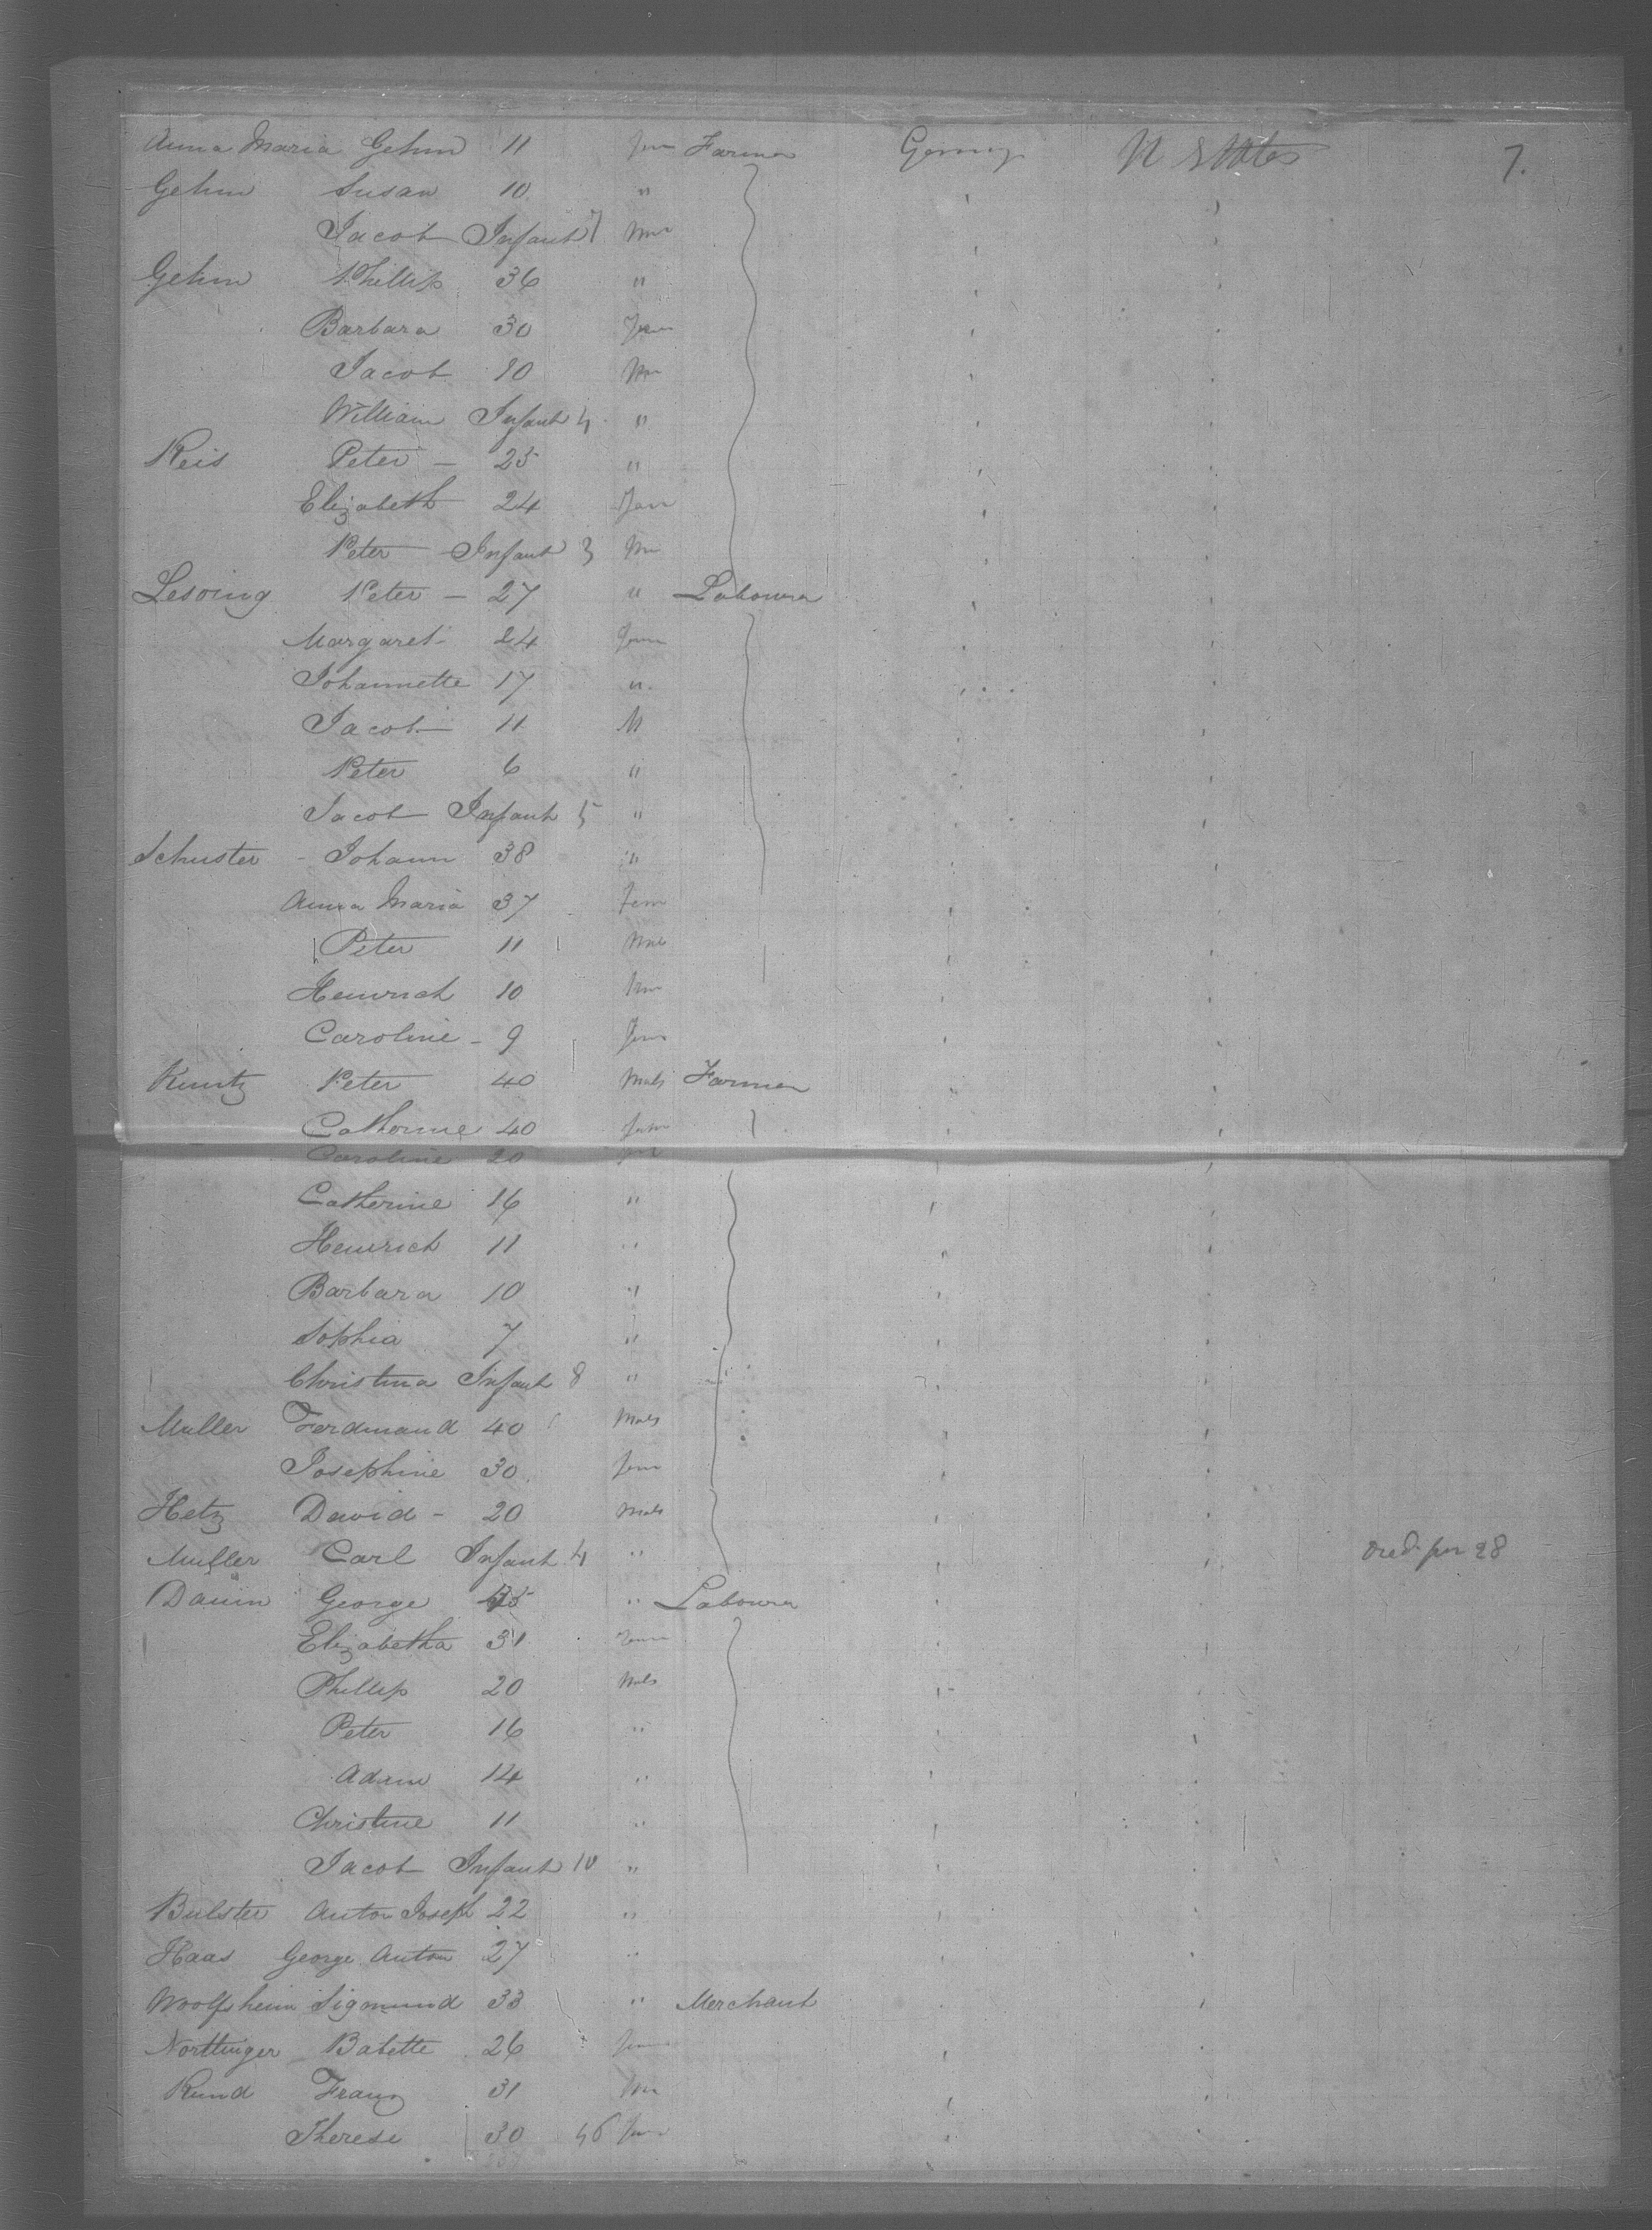 Anna Maria Gehm 11 Fem Farmer Germy U States 7.
Gehm Susan 10 "
Jacob Infant 7 Mr
Gehm Phillip 36 "
Barbara 30 Fem
Jacob 10 Mr
William Infant 4 "
Reis Peter - 25 "
Elizabeth 24 Fem
Peter Infant 3 Mr
Lesoing Peter - 27 " Labourer
Margaret 24 Fem
Johannette 17 "
Jacob 11 M
Peter 6 "
Jacob Infant 5 "
Schuster - Johann 38 "
Anna Maria 37 Fem
Peter 11 Male
Heinrich 10 Mr
Caroline - 9 Fem
Kuntz Peter 40 Male Farmer
Catherine 40 Fem
Caroline 20
Catherine 16 "
Heinrich 11 "
Barbara 10 "
Sophia 7 "
Christina Infant 8 "
Muller Ferdinand 40 Male
Josephine 30 Fem
Hetz David - 20 Male
Muller Carl Infant 4 "
Dauin George " Labourer
Elizabetha 31 Fem
Phillip 20 Male
Peter 16 "
Adam 14 "
Christine 11 "
Jacob Infant 10 "
Bulster Anton Joseph 22 "
Haas George Anton 27 "
Woolfsheim Sigmund 33 " Merchant
Northinger Babette 26 Fem
Kund Franz 31 Mr
Therese 30 46 Fem